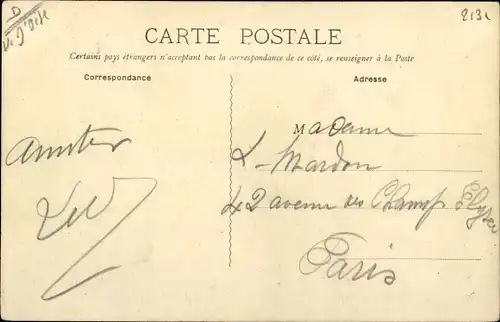 D
2131
CARTE POSTALE
Certains pays étrangers n'acceptent pas la correspondance de ce côté, se renseigner à la Poste
Correspondance
Adresse
Madame
L. Mardon
42 avenue des Champs Elysées
Paris